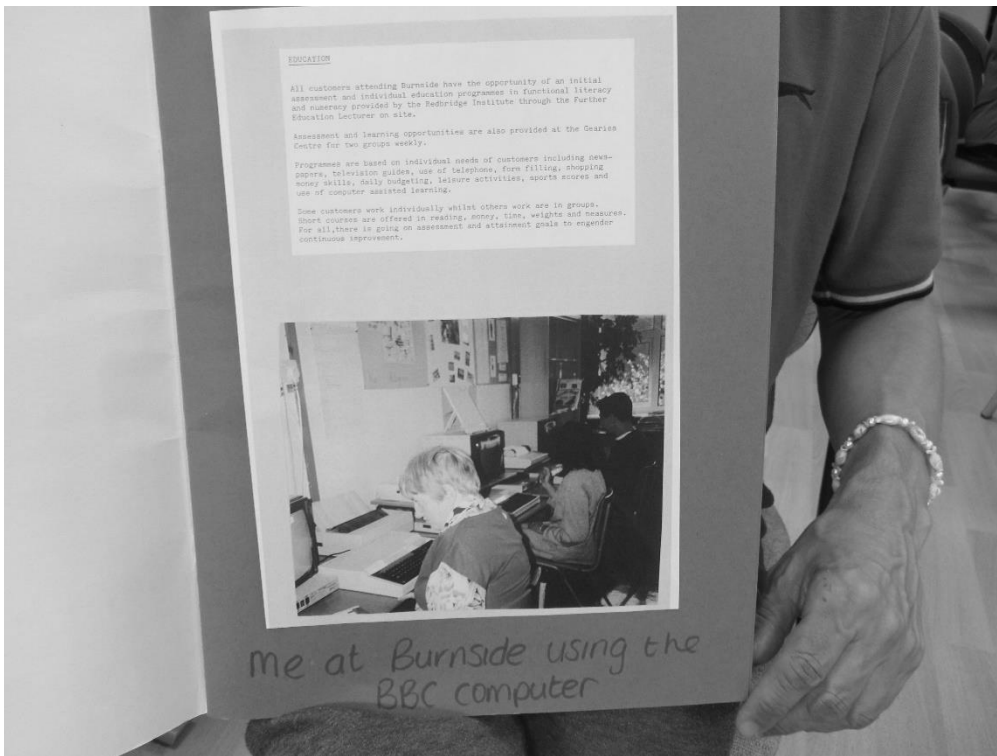 EDUCATION
All customers attending Burnside have the opportunity of an initial
assessment and individual education programmes in functional literacy
and numeracy provided by the Redbridge Institute through the Further
Education Lecturer on site.
Assessment and learning opportunities are also provided at the Gearies
Centre for two groups weekly.
Programmes are based on individual needs of customers including news-
papers, television guides, use of telephone, form filling, shopping
money skills, daily budgeting, leisure activities, sports scores and
use of computer assisted learning.
Some customers work individually whilst others work are in groups.
Short courses are offered in reading, money, time, weights and measures.
For all,there is going on assessment and attainment goals to engender
continuous improvement.
me at Burnside using the
BBC computer